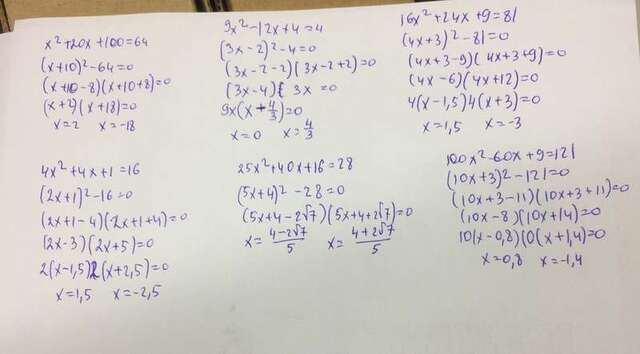 x²+20x+100=64
(x+10)²-64=0
(x+10-8)(x+10+8)=0
(x+2)(x+18)=0
x=2 x=-18
9x²-12x+4=4
(3x-2)²-4=0
(3x-2-2)(3x-2+2)=0
(3x-4) 3x=0
9x(x-4/3)=0
x=0 x=4/3
16x²+24x+9=81
(4x+3)²-81=0
(4x+3-9)(4x+3+9)=0
(4x-6)(4x+12)=0
4(x-1,5)4(x+3)=0
x=1,5 x=-3
4x²+4x+1=16
(2x+1)²-16=0
(2x+1-4)(2x+1+4)=0
(2x-3)(2x+5)=0
2(x-1,5)2(x+2,5)=0
x=1,5 x=-2,5
25x²+40x+16=28
(5x+4)²-28=0
(5x+4-2√7)(5x+4+2√7)=0
x=(4-2√7)/5 x=(4+2√7)/5
100x²-60x+9=121
(10x+3)²-121=0
(10x+3-11)(10x+3+11)=0
(10x-8)(10x+14)=0
10(x-0,8)10(x+1,4)=0
x=0,8 x=-1,4